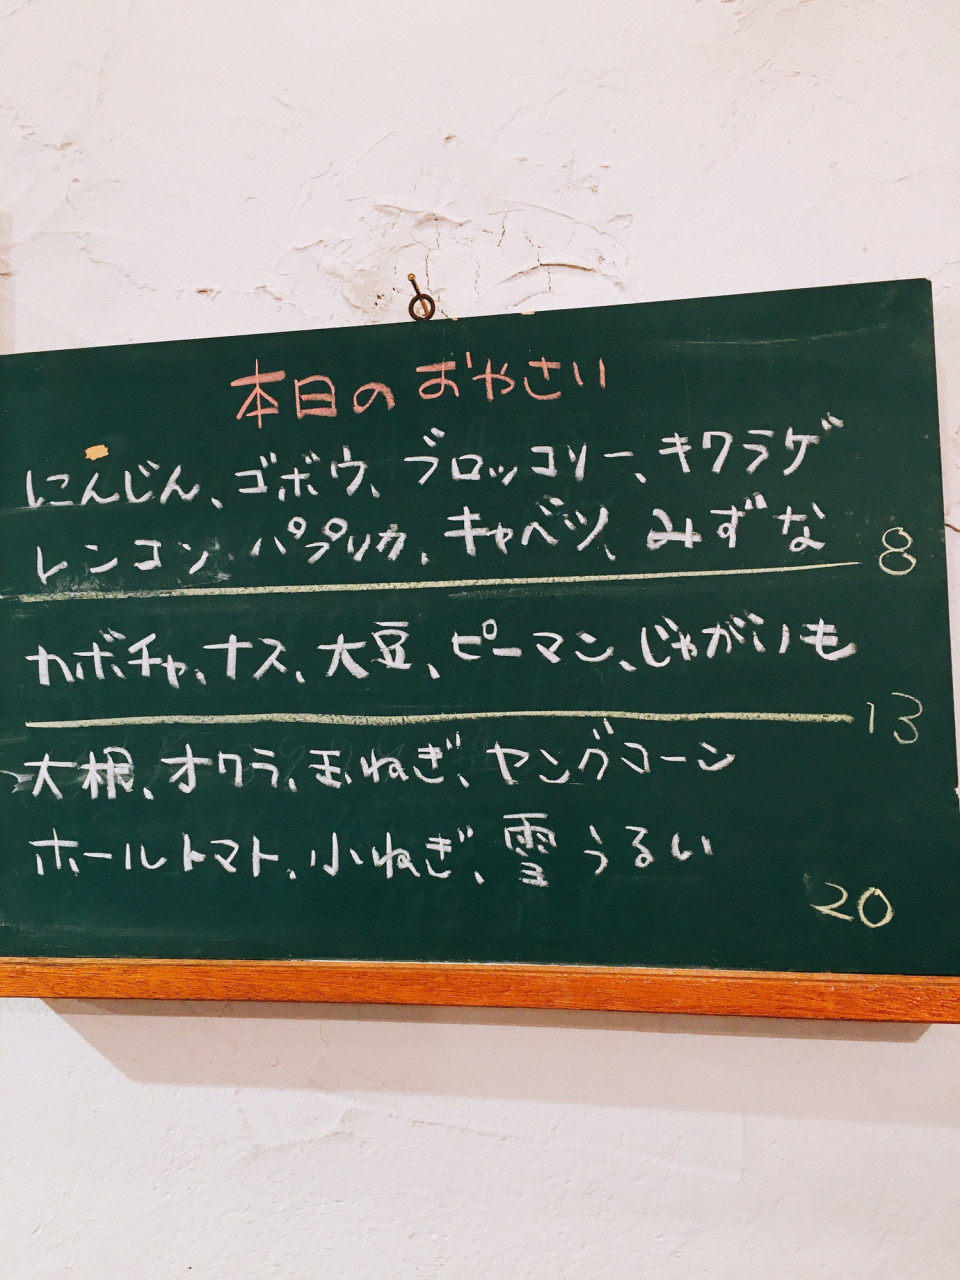 本日のおやさい
にんじん、ゴボウ、ブロッコリー、キクラゲ
レンコン パプリカ、キャベツ、みずな
8
カボチャ、ナス、大豆、ピーマン、じゃがいも
13
大根、オクラ、玉ねぎ、ヤングコーン
ホールトマト、小ねぎ、雪うるい
20